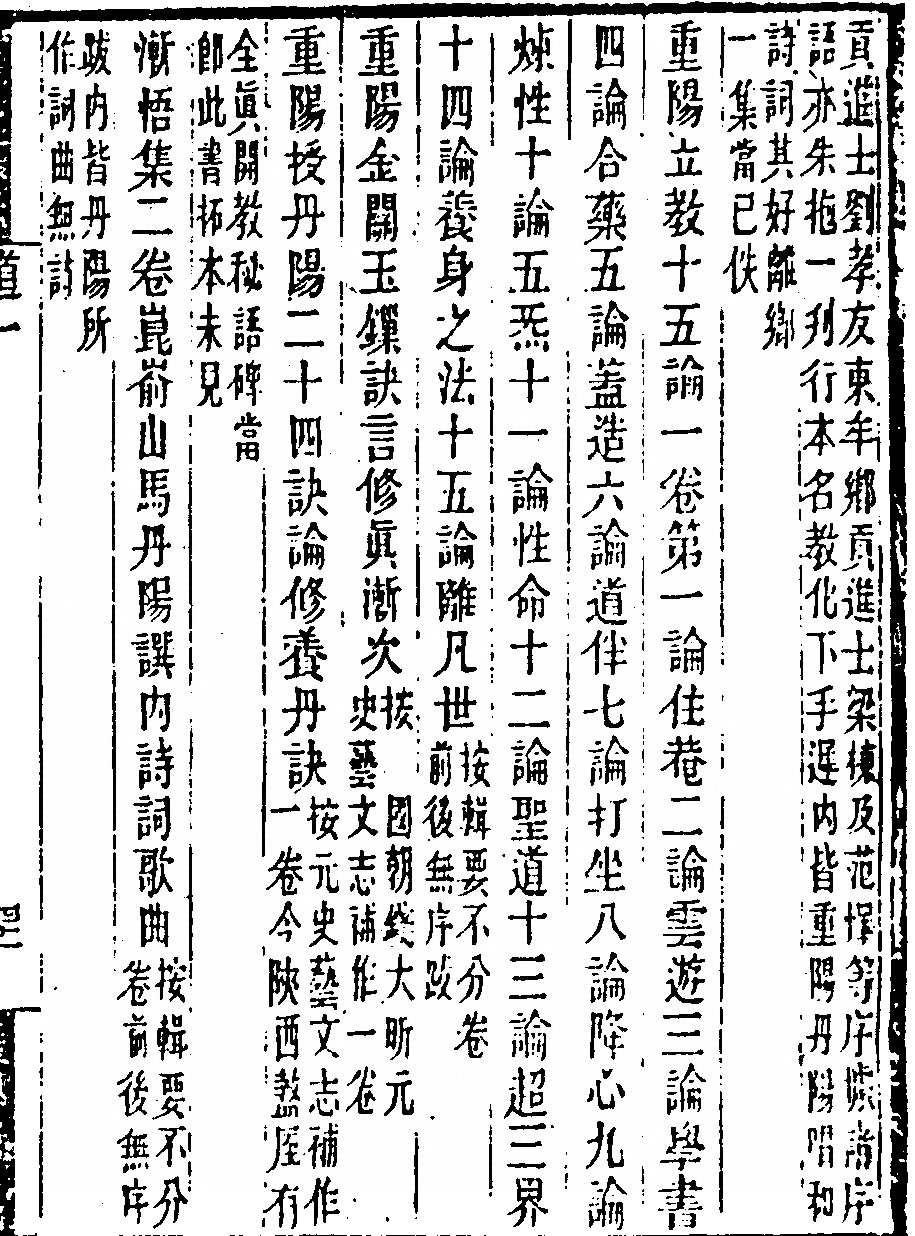 貢進士劉孝友東牟鄉貢進士梁棟及范懌等序據諸序
語亦朱抱一刋行本名教化下手遲内皆重陽丹陽唱和
詩詞其好離鄉
一集當已佚
重陽立教十五論一卷第一論住菴二論雲遊三論學書
四論合藥五論蓋造六論道伴七論打坐八論降心九論
煉性十論五炁十一論性命十二論聖道十三論超三界
十四論養身之法十五論離凡世
按輯要不分卷
前後無序跋
重陽金關玉鏁訣言修眞漸次
按國朝錢大昕元
史藝文志補作一卷
重陽授丹陽二十四訣論修養丹訣
按元史藝文志補作
一卷今陝西盩厔有
全眞開教秘語碑當
卽此書拓本未見
漸悟集二卷崑嵛山馬丹陽譔内詩詞歌曲
按輯要不分
卷前後無序
跋内皆丹陽所
作詞曲無詩
道一